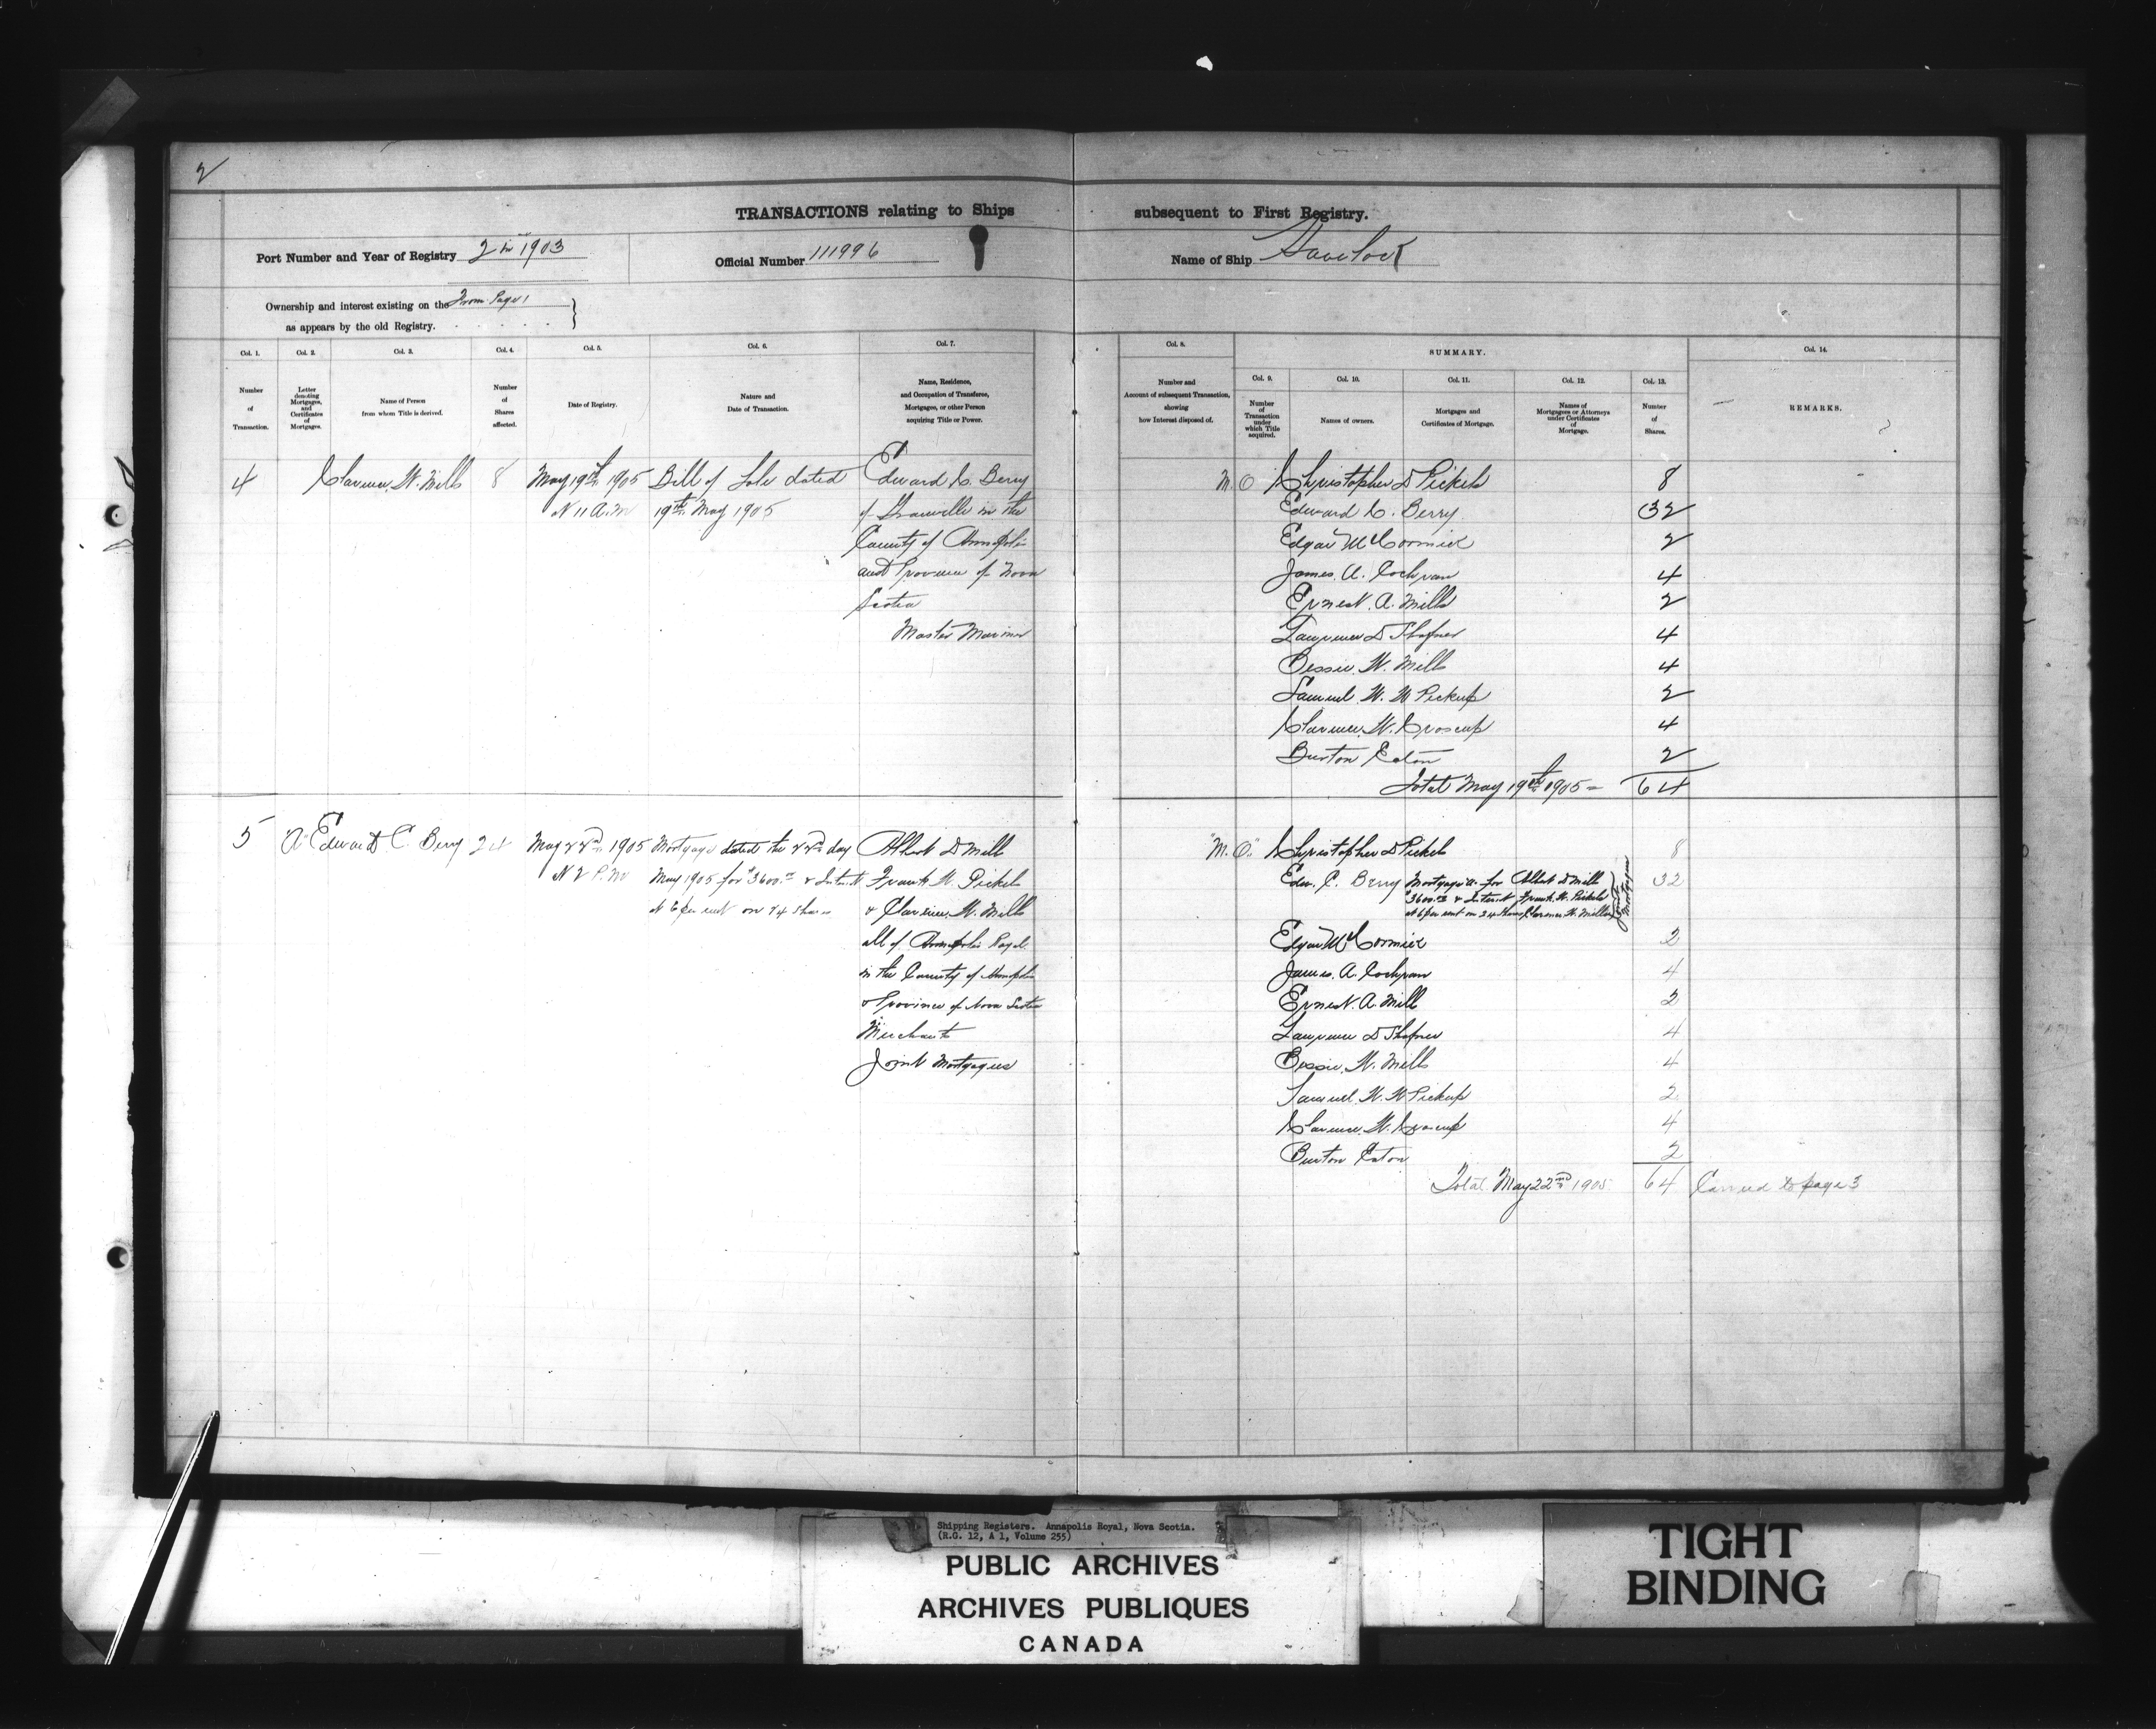 2
TRANSACTIONS relating to Ships subsequent to First Registry.
Port Number and Year of Registry 2 in 1903
Official Number 111996
Name of Ship Havelock
Ownership and interest existing on the From Page 1
as appears by the old Registry.
Col. 1. Col. 2. Col. 3. Col. 4. Col. 5. Col. 6. Col. 7.
Number
of
Transaction.
Letter
denoting
Mortgages,
and
Certificates
of
Mortgages.
Name of Person
from whom Title is derived.
Number
of
Shares
affected.
Date of Registry.
Nature and
Date of Transaction.
Name, Residence,
and Occupation of Transferee,
Mortgagee, or other Person
acquiring Title or Power.
Col. 8.
Number and
Account of subsequent Transaction,
showing
how Interest disposed of.
SUMMARY.
Col. 9. Col. 10. Col. 11. Col. 12. Col. 13.
Number
of
Transaction
under
which Title
acquired.
Names of owners.
Mortgages and
Certificates of Mortgage.
Names of
Mortgagees or Attorneys
under Certificates
of
Mortgage.
Number
of
Shares.
Col. 14.
REMARKS.
4 Clarence W. Mills 8
May 19th 1905
at 11 A.M
Bill of Sale dated
19th May 1905
Edward C. Berry
of Granville in the
County of Annapolis
and Province of Nova
Scotia
Master Mariner
M. O Christopher D Pickels 8
Edward C. Berry 32
Edgar McCormick 2
James A. Cochran 4
Ernest A. Mills 2
Lawrence D Shafner 4
Bessie W. Mills 4
Samuel W. W Pickup 2
Clarence W. Croscup 4
Burton Eaton 2
Total May 19th 1905 = 64
5 "A" Edward C. Berry 24
May 22nd 1905
at 2 P.M
Mortgage dated the 22nd day
May 1905 for $3600.00 & Interest
at 6 per cent on 24 Shares
Albert D Mills
Frank W. Pickels
& Clarence W. Mills
all of Annapolis Royal
in the County of Annapolis
& Province of Nova Scotia
Merchants
Joint Mortgagees
"M. O." Christopher D Pickels 8
Edw. C. Berry Mortgage "A" for Albert D Mills 32
$3600.00 & Interest Frank W. Pickels
at 6 per cent on 24 Shares Clarence W. Mills
Joint Mortgagees
Edgar McCormick 2
James A. Cochran 4
Ernest A. Mills 2
Lawrence D Shafner 4
Bessie W. Mills 4
Samuel W. W Pickup 2
Clarence W. Croscup 4
Burton Eaton 2
Total May 22nd 1905 64 Carried to page 3
Shipping Registers. Annapolis Royal, Nova Scotia.
(R.G. 12, A 1, Volume 255)
PUBLIC ARCHIVES
ARCHIVES PUBLIQUES
CANADA
TIGHT
BINDING